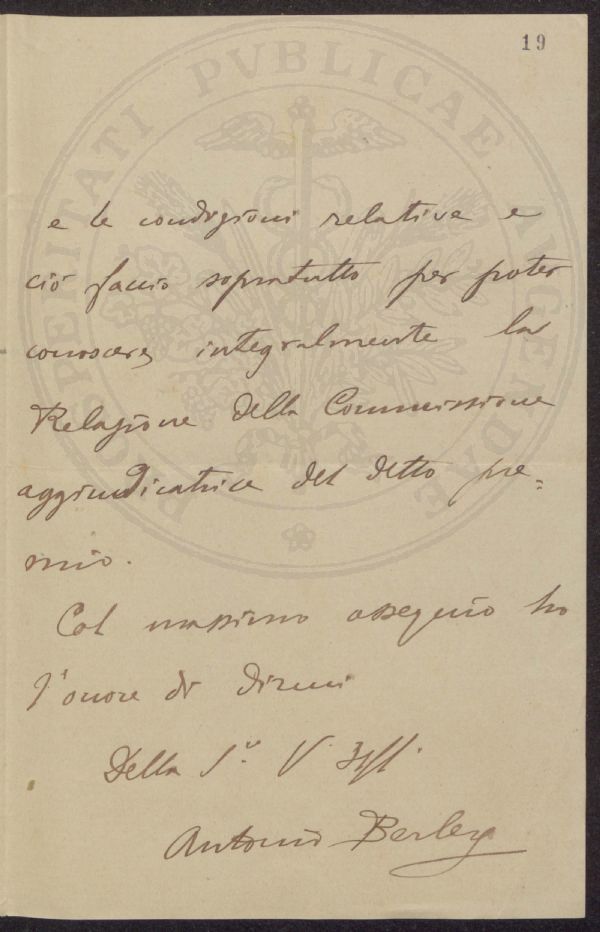 19
PROSPERITATI PVBLICAE AVGENDAE
e le condizioni relative e
ciò faccio sopratutto per poter
conoscere integralmente la
Relazione della Commissione
aggiudicatrice del detto pre=
mio.
Col massimo ossequio ho
l'onore di dirmi
Della S. V. Ill.
Antonio